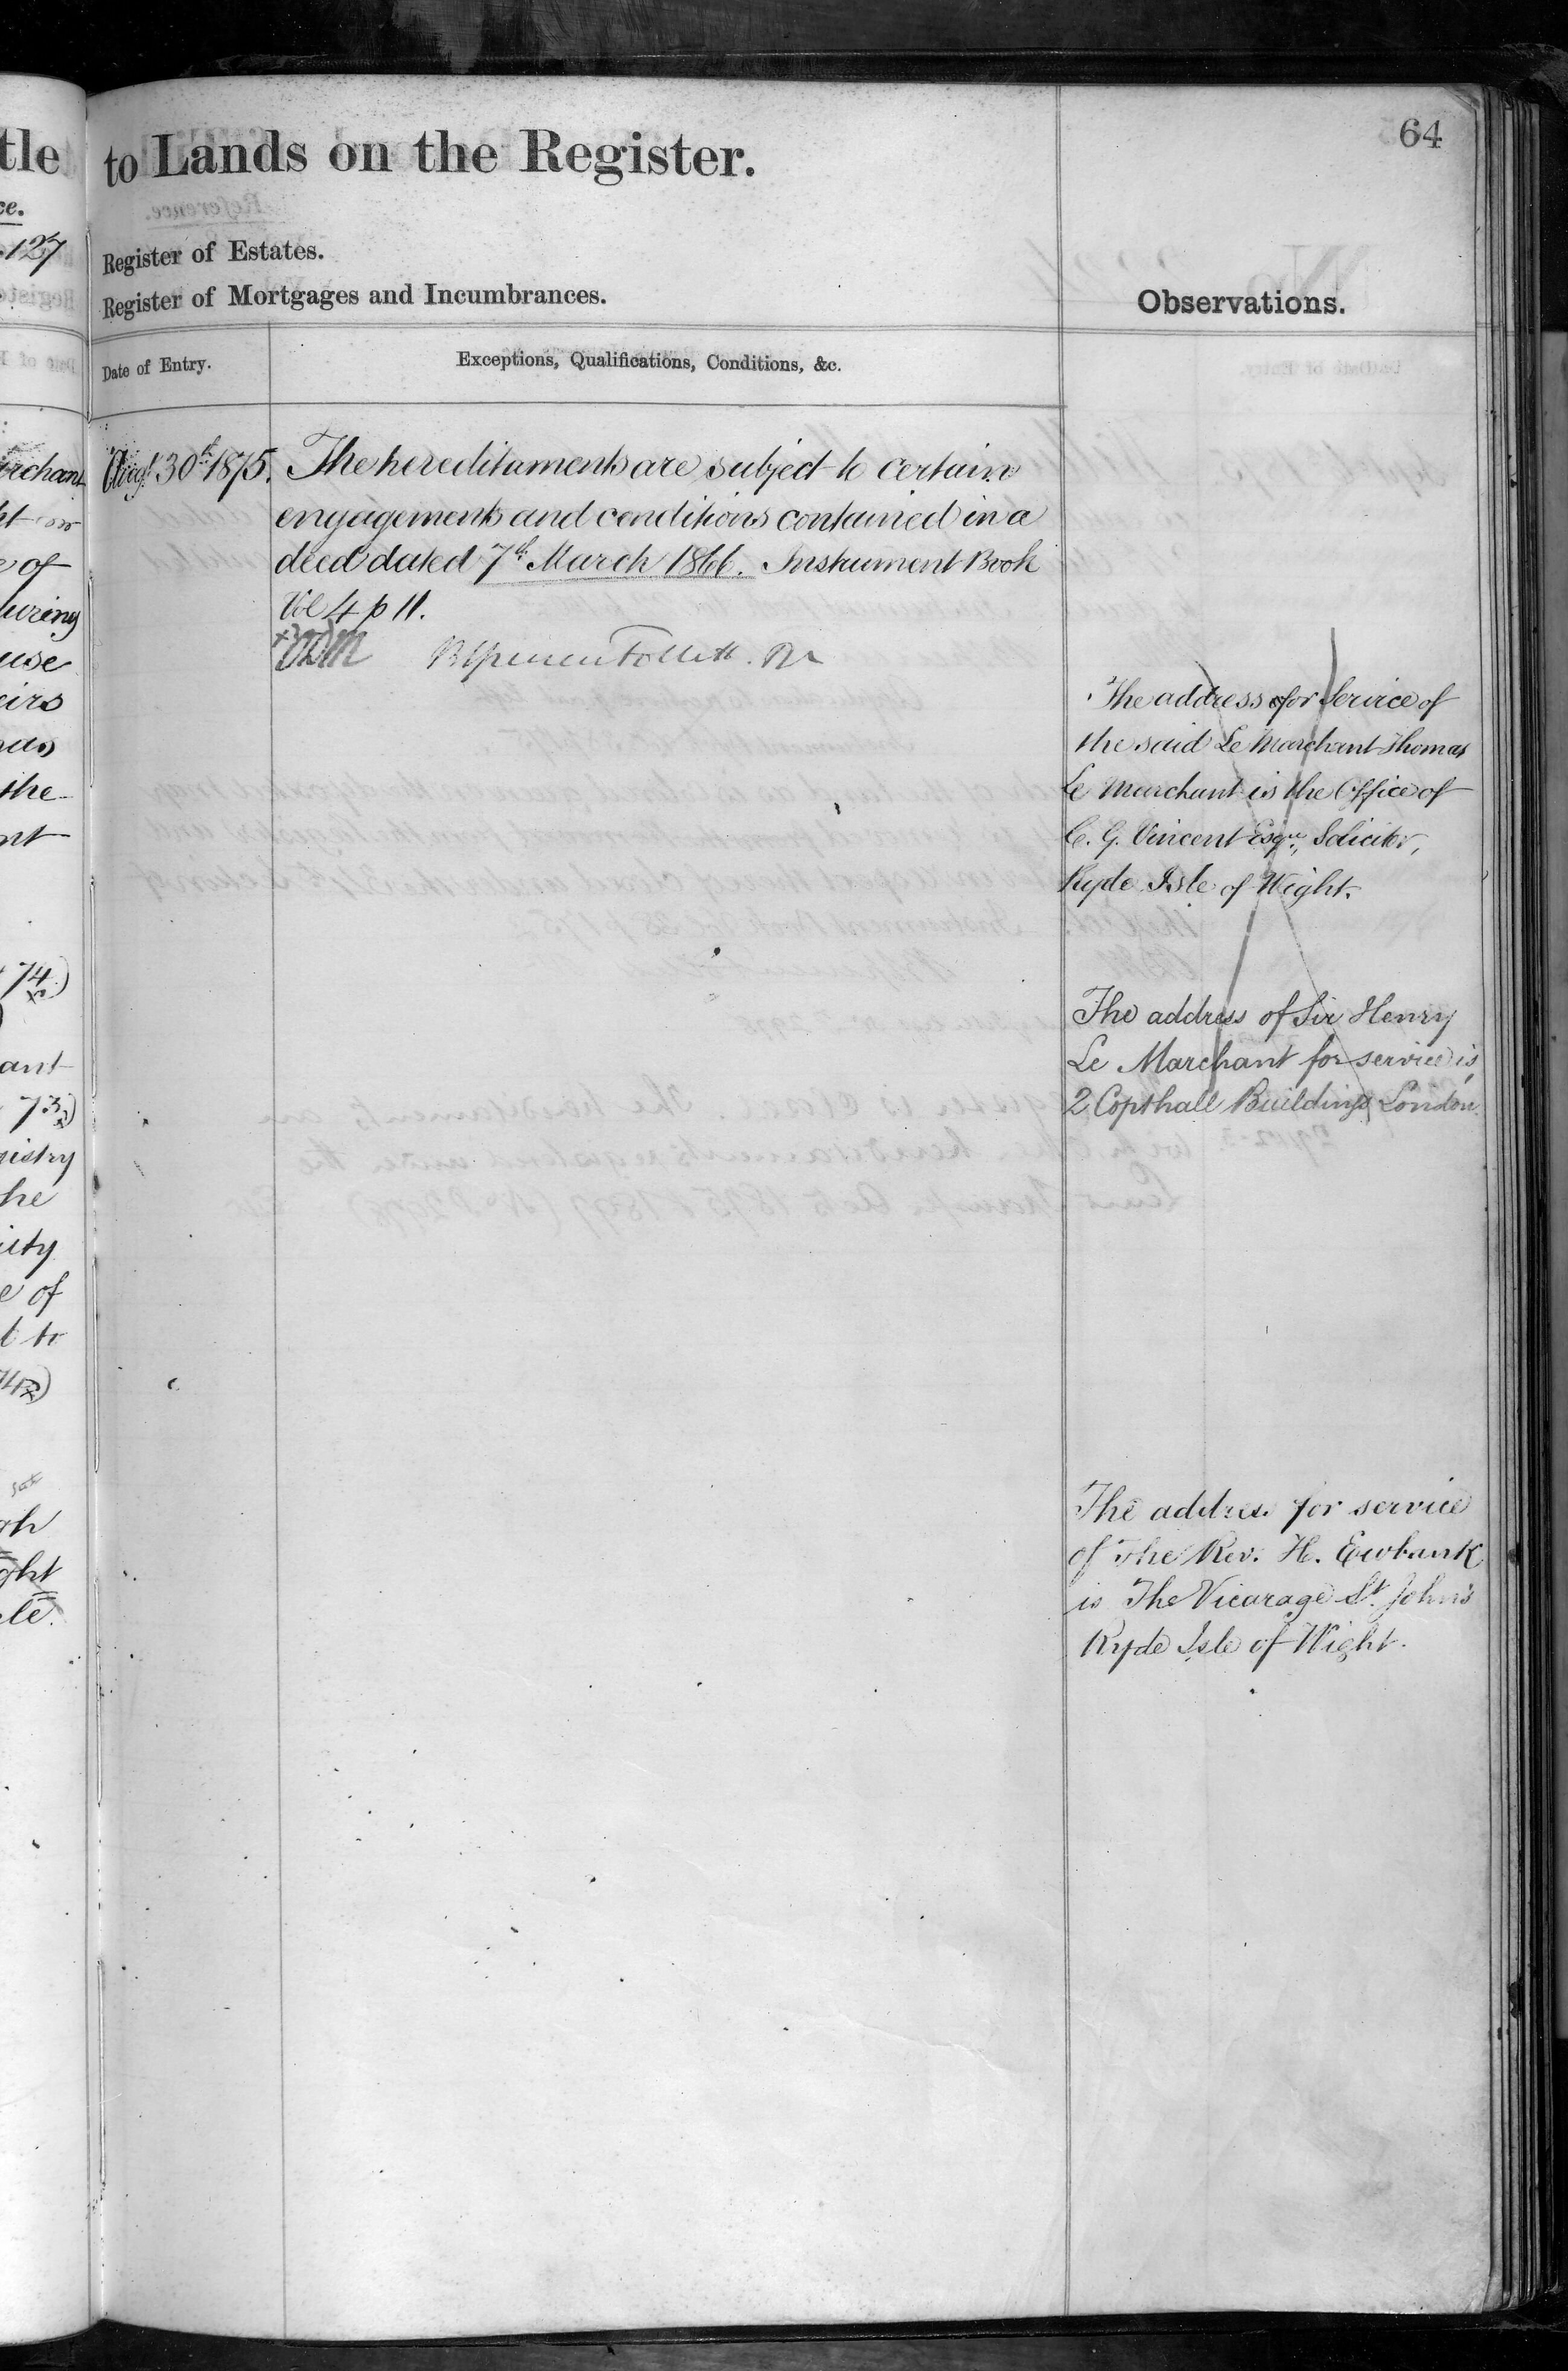 tle
ce.
127
rchant
ht
of
uring
use
eirs
the
nt
74)
ant
73)
gistry
he
e of
t to
ght
to Lands on the Register.
64
Register of Estates.
Register of Mortgages and Incumbrances.
Observations.
Date of Entry.
Exceptions, Qualifications, Conditions, &c.
Augt. 30th 1875.
The hereditaments are subject to certain
engagements and conditions contained in a
deed dated 7th March 1866. Instrument Book
Vol 4 p 11.
Follett
The address for Service of
the said Le Marchant Thomas
Le Marchant is the Office of
C. G. Vincent Esqre, Solicitor,
Ryde Isle of Wight.
The address of Sir Henry
Le Marchant for service is
2 Copthall Buildings London.
The address for service
of The Rev. H. Ewbank
is The Vicarage St. John's
Ryde Isle of Wight.